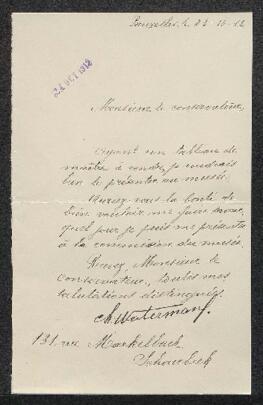 Bruxelles, le 23-10-12
24 OCT 1912
Monsieur le conservateur,
Ayant un tableau de
maître à vendre, je voudrais
bien le présenter au musée.
Aurez vous la bonté de
bien vouloir me faire savoir,
quel jour je puis me présenter
à la commission du musée.
Recevez Monsieur le
conservateur, toutes mes
salutations distinguées.
131 rue
Schaerbeek